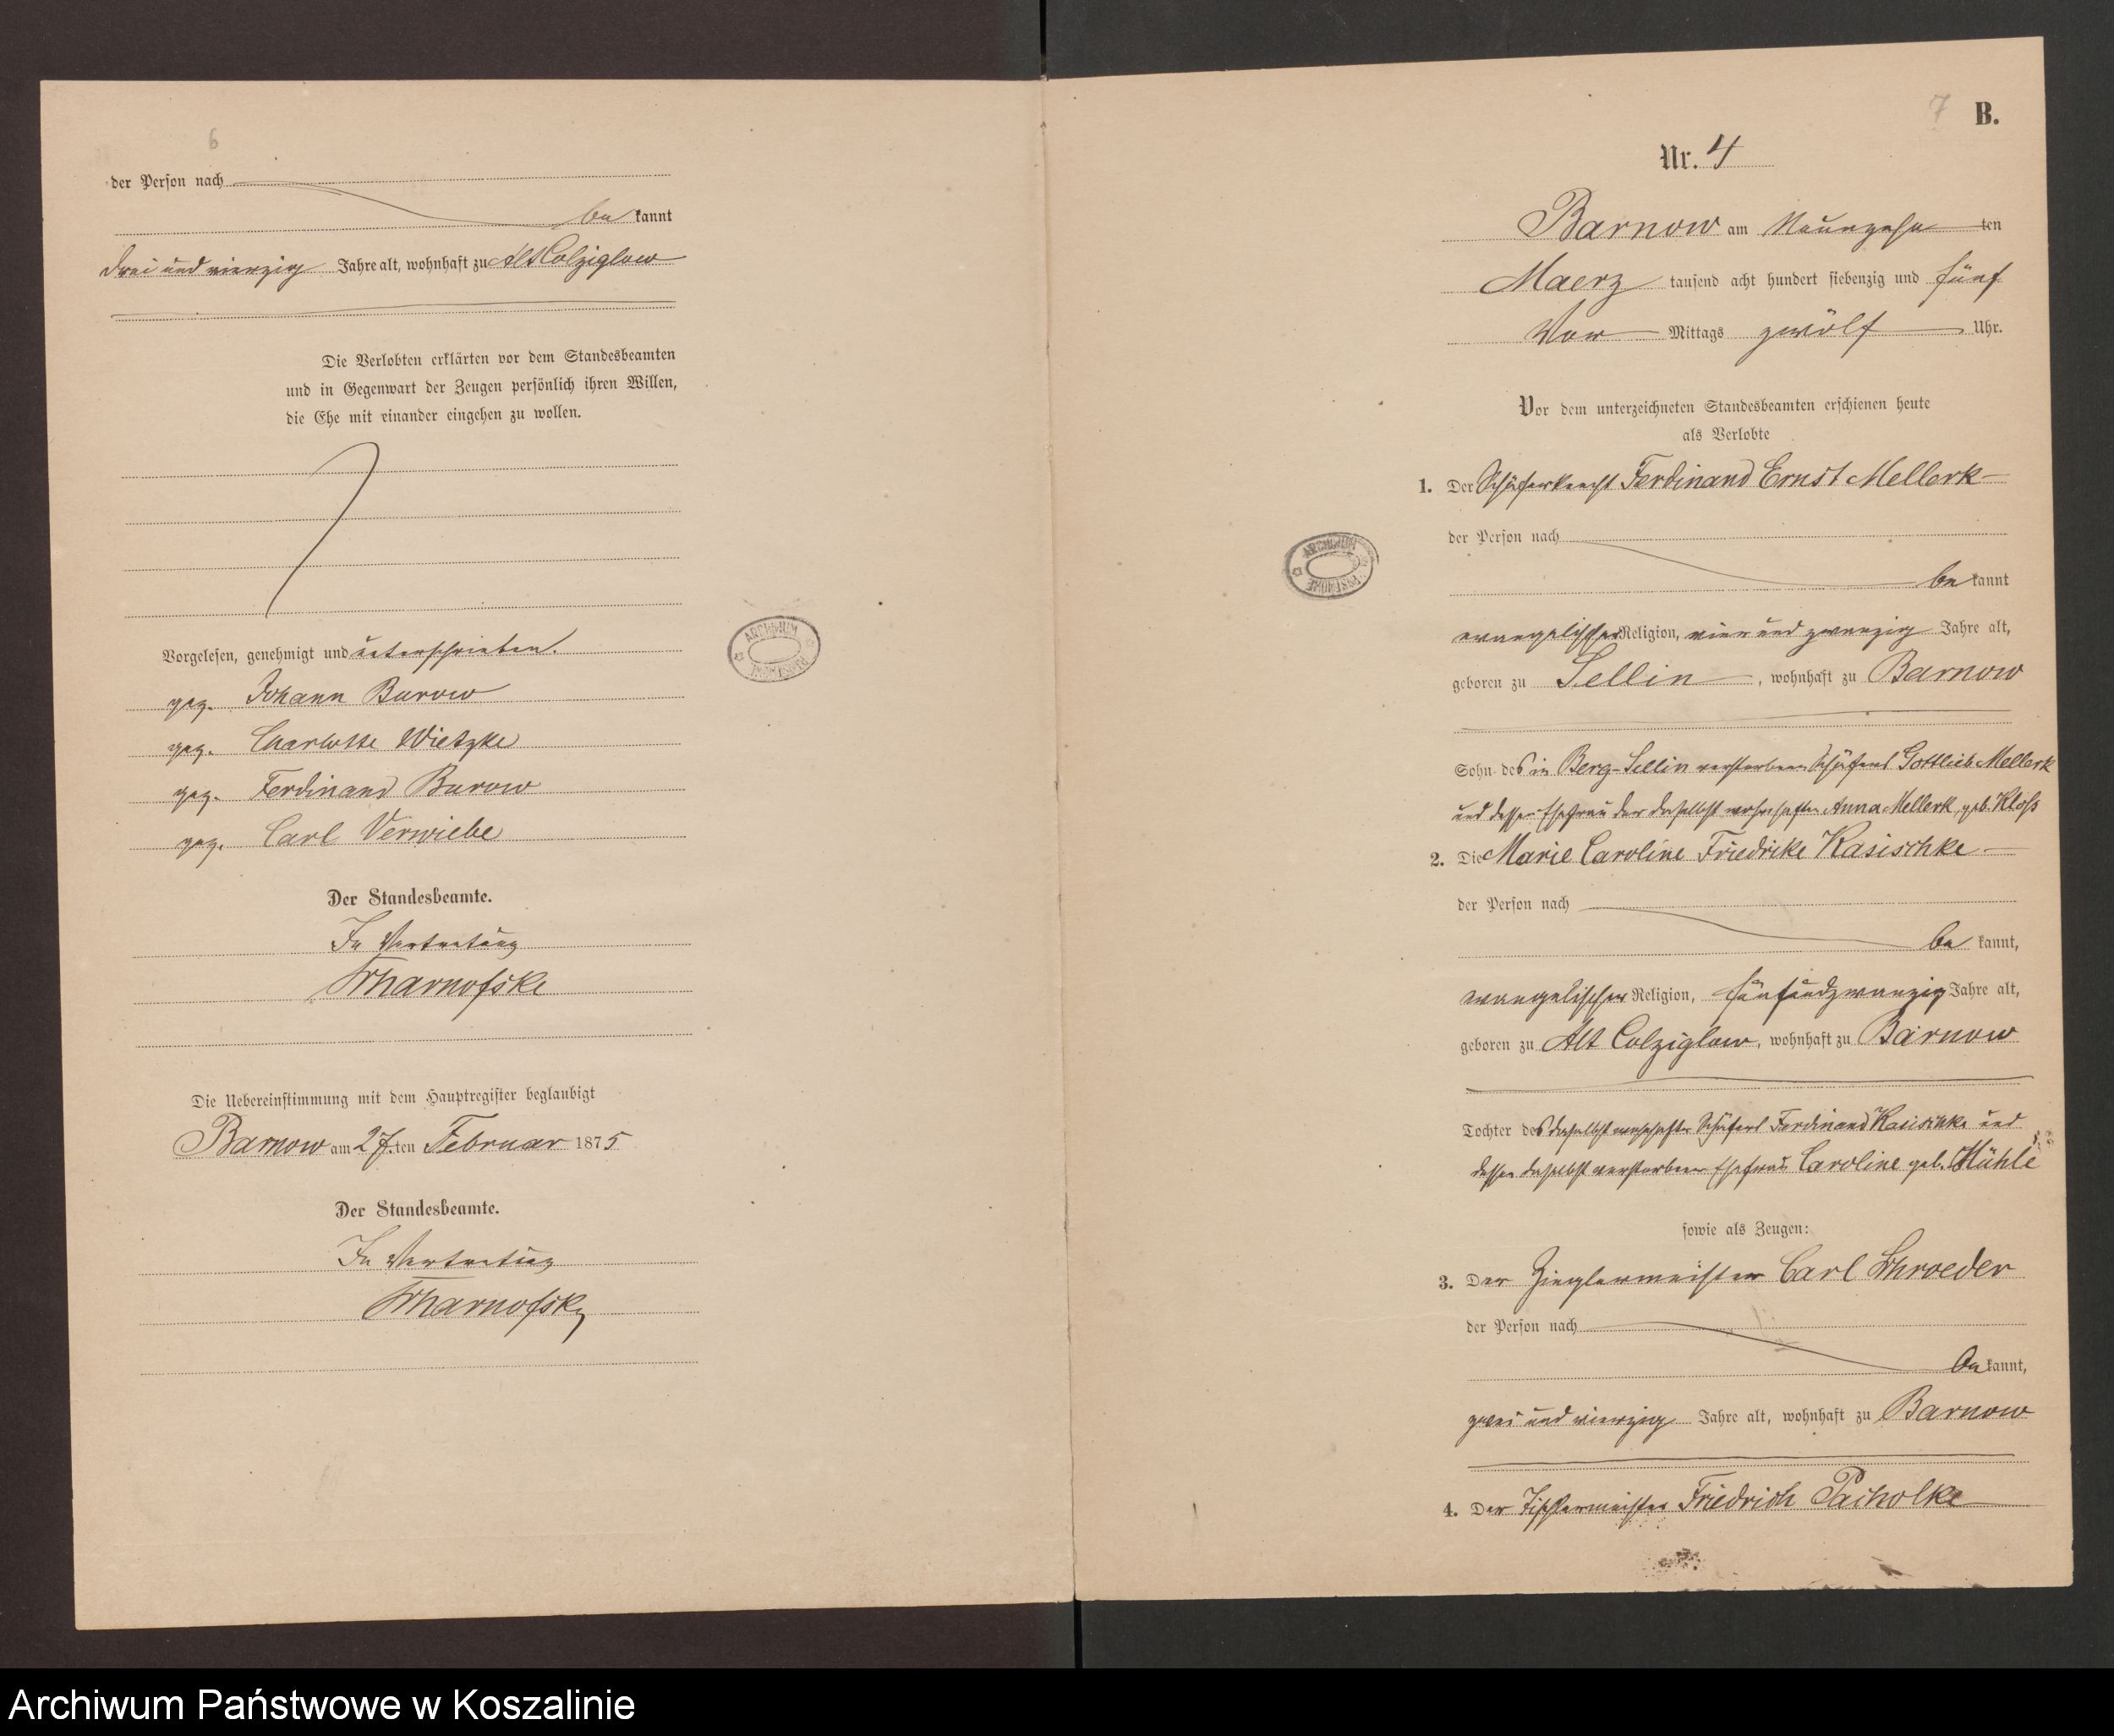 6
der Person nach
be kannt
drei und vierzig Jahre alt, wohnhaft zu Alt Colziglow
Die Verlobten erklärten vor dem Standesbeamten
und in Gegenwart der Zeugen persönlich ihren Willen,
die Ehe mit einander eingehen zu wollen.
Vorgelesen, genehmigt und unterschrieben.
gez. Johann Burow
gez. Charlotte Wietzke
gez. Ferdinand Burow
gez. Carl Verwiebe
Der Standesbeamte.
In Vertretung
Die Uebereinstimmung mit dem Hauptregister beglaubigt
Barnow am 27.ten Februar 1875
Der Standesbeamte.
In Vertretung
ARCHIWUM
7 B.
Nr. 4
Barnow am Neunzehn ten
Maerz tausend acht hundert siebenzig und fünf
Vor Mittags zwölf Uhr.
Vor dem unterzeichneten Standesbeamten erschienen heute
als Verlobte
1. Der Schäferknecht Ferdinand Ernst Mellerk
der Person nach
be kannt
evangelischer Religion, vier und zwanzig Jahre alt,
geboren zu Sellin, wohnhaft zu Barnow
Sohn des in Berg-Sellin verstorbenen Schäfers Gottlieb Mellerk
und dessen Ehefrau der daselbst wohnhaften Anna Mellerk, geb. Kloß
2. Die Marie Caroline Friedrike Kasischke
der Person nach
be kannt,
evangelischer Religion, fünfundzwanzig Jahre alt,
geboren zu Alt Colziglow, wohnhaft zu Barnow
Tochter des daselbst wohnhaften Schäfers Ferdinand Kasischke und
dessen daselbst verstorbenen Ehefrau Caroline geb.
sowie als Zeugen:
3. Der Zieglermeister Carl Schroeder
der Person nach
be kannt,
zwei und vierzig Jahre alt, wohnhaft zu Barnow
4. Der Friedrich Pacholke
ARCHIWUM
Archiwum Państwowe w Koszalinie